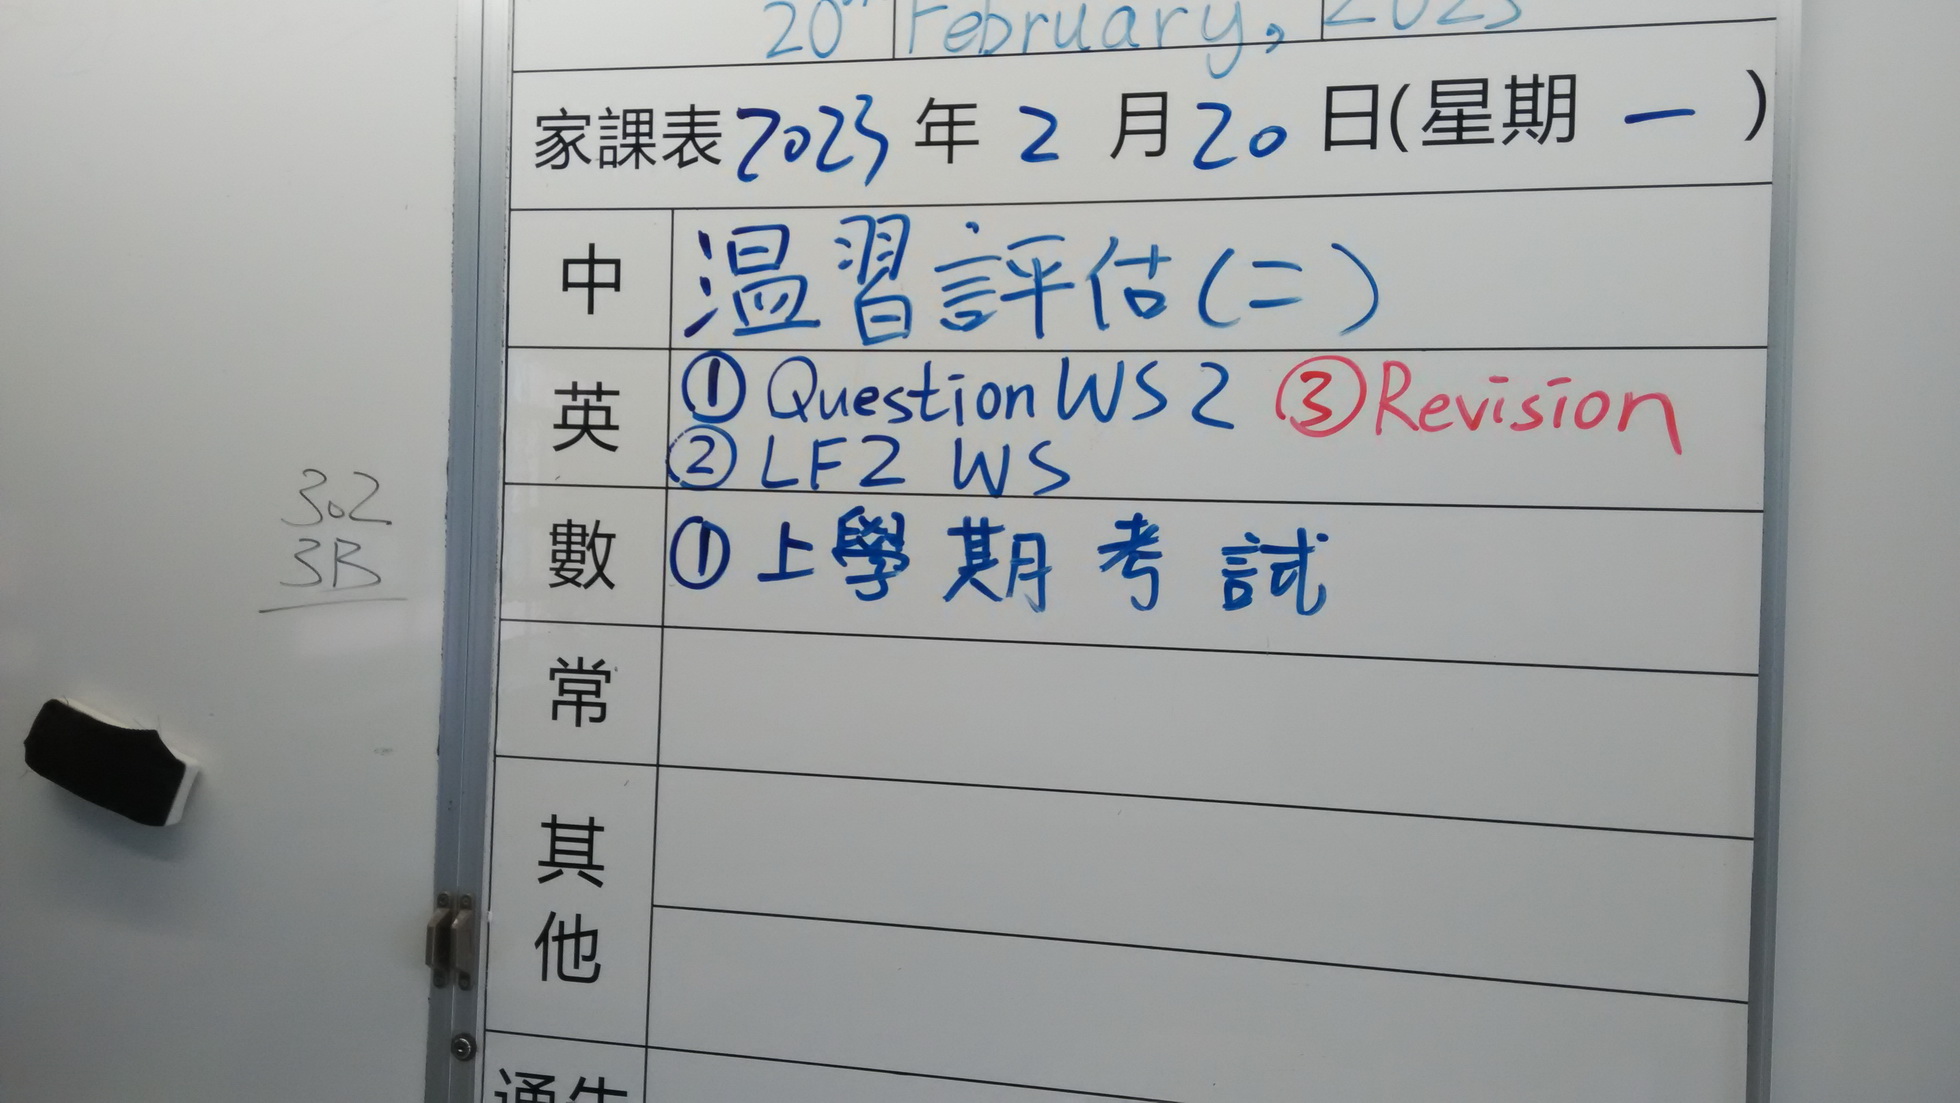 20th February, 2023
家課表 2023 年 2 月 20 日(星期 一 )
中 温習評估(二)
英 ① Question WS 2 ③ Revision
② LF2 WS
數 ① 上學期考試
常
其他
302
3B